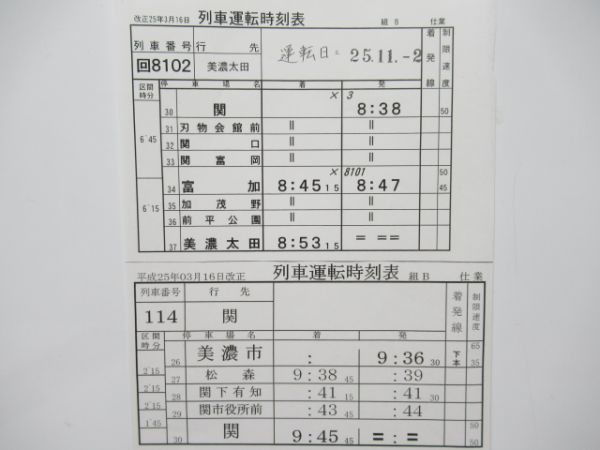 改正25年3月16日 列車運転時刻表 組 B 仕業
列車番号 行先 運転日: 25.11.-2 着発線 制限速度
回8102 美濃太田
区間時分 停車場名 着 発
30 関 × 3 8:38 50
31 刃物会館前 || ||
6'45 32 関口 || ||
33 関富岡 || ||
34 富加 8:45 15 × 8101 8:47 50 45
35 加茂野 || ||
6'15 36 前平公園 || ||
37 美濃太田 8:53 15 = ==
平成25年03月16日改正 列車運転時刻表 組 B 仕業
列車番号 行先 着発線 制限速度
114 関
区間時分 停車場名 着 発
26 美濃市 : 9:36 30 下本 65 35
2'15 27 松森 9:38 45 :39
2'15 28 関下有知 :41 15 :41 30
2'15 29 関市役所前 :43 45 :44
1'45 30 関 9:45 45 =:= 50 50